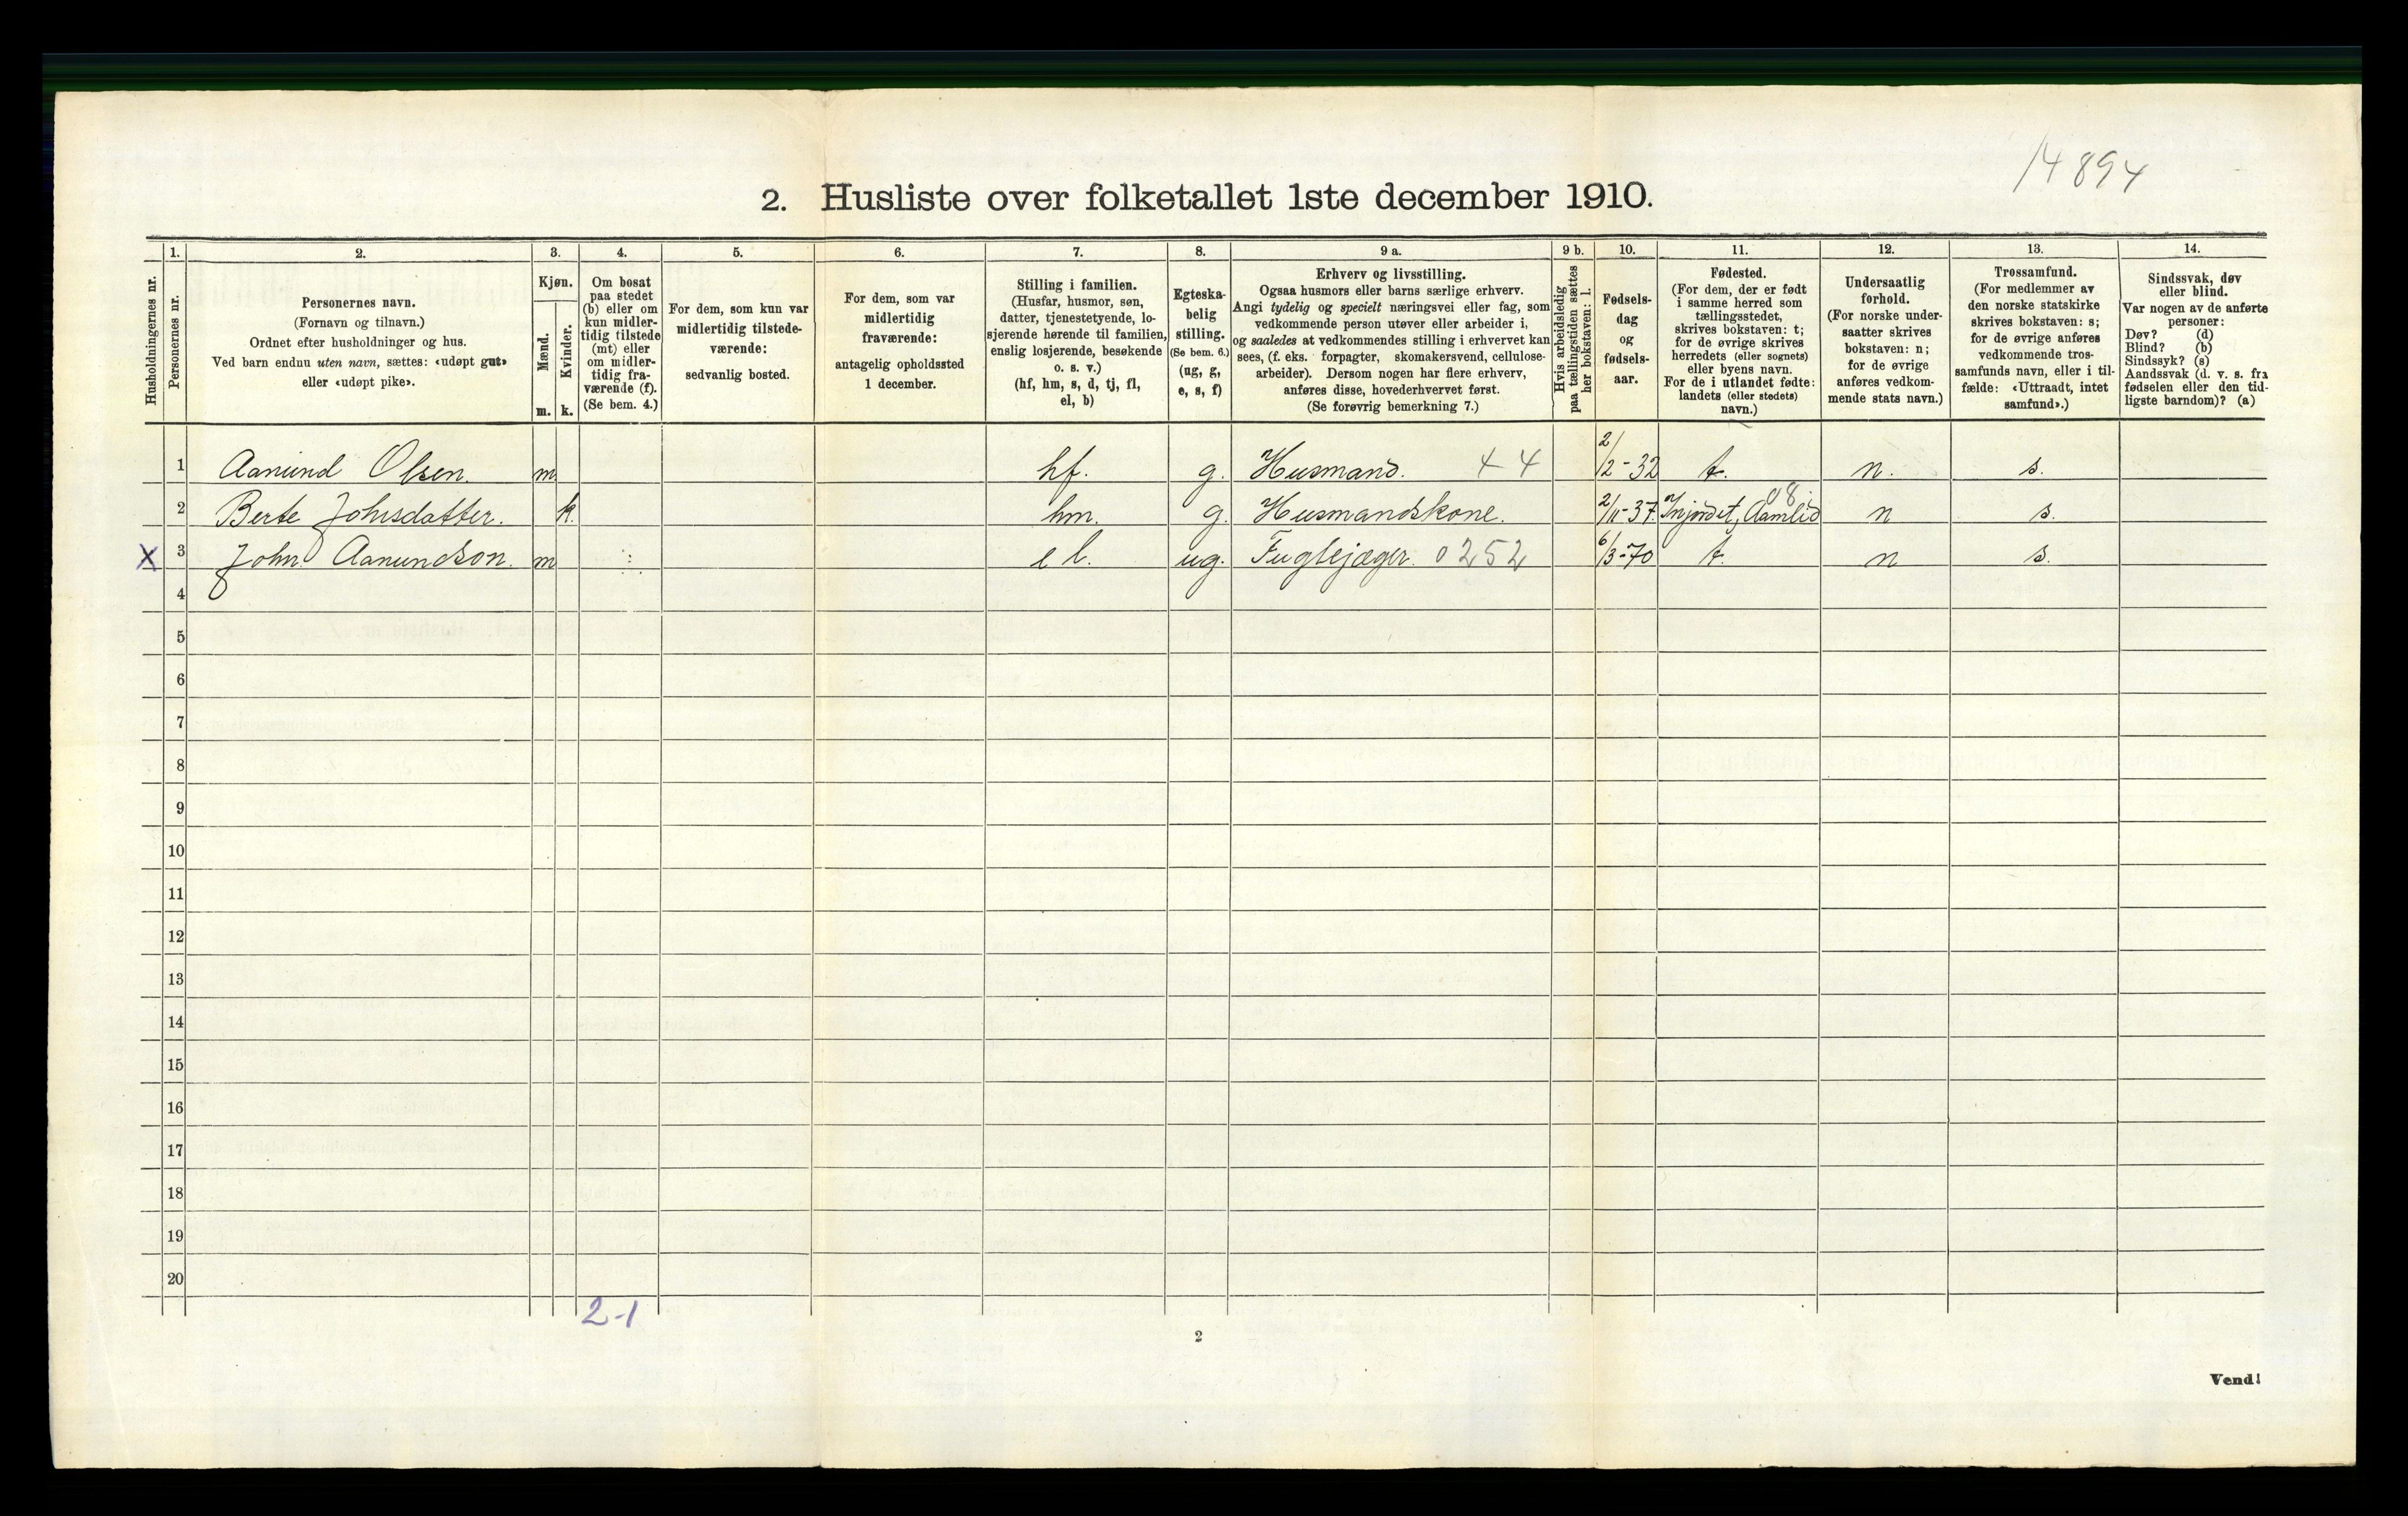 14894
2. Husliste over folketallet 1ste december 1910.
Husholdningernes nr.
1.
Personernes nr.
2.
Personernes navn.
(Fornavn og tilnavn.)
Ordnet efter husholdninger og hus.
Ved barn endnu uten navn, sættes: «udøpt gut»
eller «udøpt pike».
3.
Kjøn.
Mænd.
Kvinder.
m. k.
4.
Om bosat
paa stedet
(b) eller om
kun midler-
tidig tilstede
(mt) eller
om midler-
tidig fra-
værende (f).
(Se bem. 4.)
5.
For dem, som kun var
midlertidig tilstede-
værende:
sedvanlig bosted.
6.
For dem, som var
midlertidig
fraværende:
antagelig opholdssted
1 december.
7.
Stilling i familien.
(Husfar, husmor, søn,
datter, tjenestetyende, lo-
sjerende hørende til familien,
enslig losjerende, besøkende
o. s. v.)
(hf, hm, s, d, tj, fl,
el, b)
8.
Egteska-
belig
stilling.
(Se bem. 6.)
(ug, g,
e, s, f)
9 a.
Erhverv og livsstilling.
Ogsaa husmors eller barns særlige erhverv.
Angi tydelig og specielt næringsvei eller fag, som
vedkommende person utøver eller arbeider i,
og saaledes at vedkommendes stilling i erhvervet kan
sees, (f. eks. forpagter, skomakersvend, cellulose-
arbeider). Dersom nogen har flere erhverv,
anføres disse, hovederhvervet først.
(Se forøvrig bemerkning 7.)
9 b.
Hvis arbeidsledig
paa tællingstiden sættes
her bokstaven: l.
10.
Fødsels-
dag
og
fødsels-
aar.
11.
Fødested.
(For dem, der er født
i samme herred som
tællingsstedet,
skrives bokstaven: t;
for de øvrige skrives
herredets (eller sognets)
eller byens navn.
For de i utlandet fødte:
landets (eller stedets)
navn.)
12.
Undersaatlig
forhold.
(For norske under-
saatter skrives
bokstaven: n;
for de øvrige
anføres vedkom-
mende stats navn.)
13.
Trossamfund.
(For medlemmer av
den norske statskirke
skrives bokstaven: s;
for de øvrige anføres
vedkommende tros-
samfunds navn, eller i til-
fælde: «Uttraadt, intet
samfund».)
14.
Sindssvak, døv
eller blind.
Var nogen av de anførte
personer:
Døv? (d)
Blind? (b)
Sindssyk? (s)
Aandssvak (d. v. s. fra
fødselen eller den tid-
ligste barndom)? (a)
1 Aanund Olsen. m hf. g. Husmand. 44 2/2-32 t. n. s.
2 Berte Johnsdatter. k. hm. g. Husmandskone. 2/11-37. Aamlid n s.
X 3 John Aanundson. m el. ug. Fuglejæger. 0252 6/3-70 t. n s.
4
5
6
7
8
9
10
11
12
13
14
15
16
17
18
19
20
2-1
2
Vend!